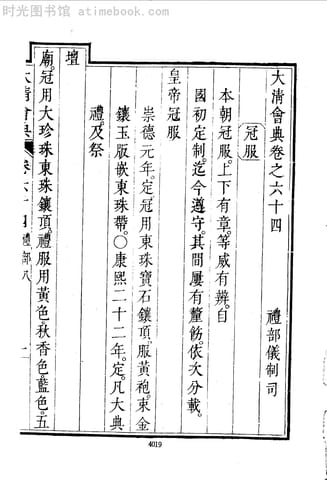 时光图书馆 - atimebook.com
大清會典卷之六十四
禮部儀制司
冠服
本朝冠服。上下有章。等威有辨。自
國初定制。迄今遵守。其間屢有釐飭。依次分載。
皇帝冠服
崇德元年。定冠用東珠寶石鑲頂。服黃袍。束金
鑲玉版嵌東珠帶。○康熙二十二年。定。凡大典
禮。及祭
壇
廟。冠用大珍珠東珠鑲頂。禮服用黃色。秋香色。藍色。五
大清會典
卷六十四
禮部八
一
4019